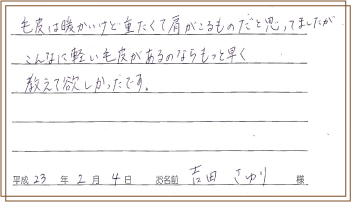 毛皮は暖かいけど重たくて肩がこるものだと思ってましたが
こんなに軽い毛皮があるのならもっと早く
教えて欲しかったです。
平成 23 年 2 月 4 日 お名前 吉田 さゆり 様